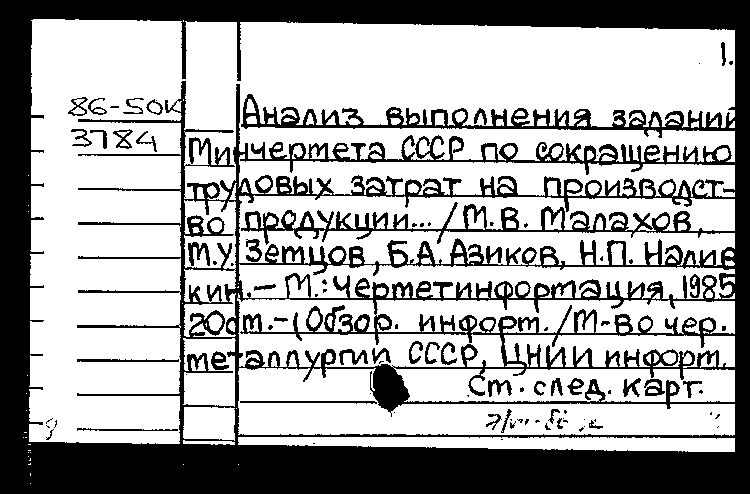 1.
86-50К
3784
Анализ выполнения заданий
Минчермета СССР по сокращению
трудовых затрат на производст-
во продукции... / М.В. Малахов,
М.У. Земцов, Б.А. Азиков, Н.П. Налив
кин. – М.: Черметинформация, 1985
20с
м. – (Обзор. информ. / М-во чер.
металлургии СССР, ЦНИИ информ.
См. след. карт.